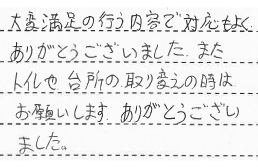 大変満足の行う内容で対応もよく
ありがとうございました。また
トイレや台所の取り変えの時は
お願いします。ありがとうござい
ました。